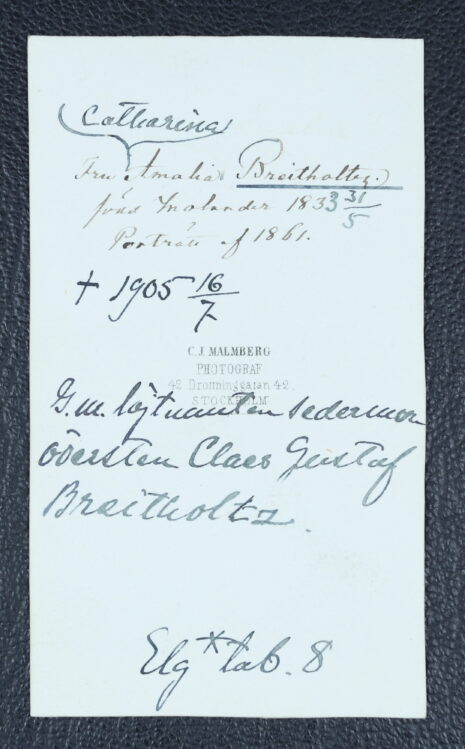 Catharina
Fru Amalia Breitholtz.
född Molander 1833 31/5
Porträtt af 1861.
† 1905 16/7
C. J. MALMBERG
PHOTOGRAF
42 Drottninggatan 42
STOCKHOLM
G.m. löjtnanten sedermera
öfversten Claes Gustaf
Breitholtz.
Elg* tab. 8